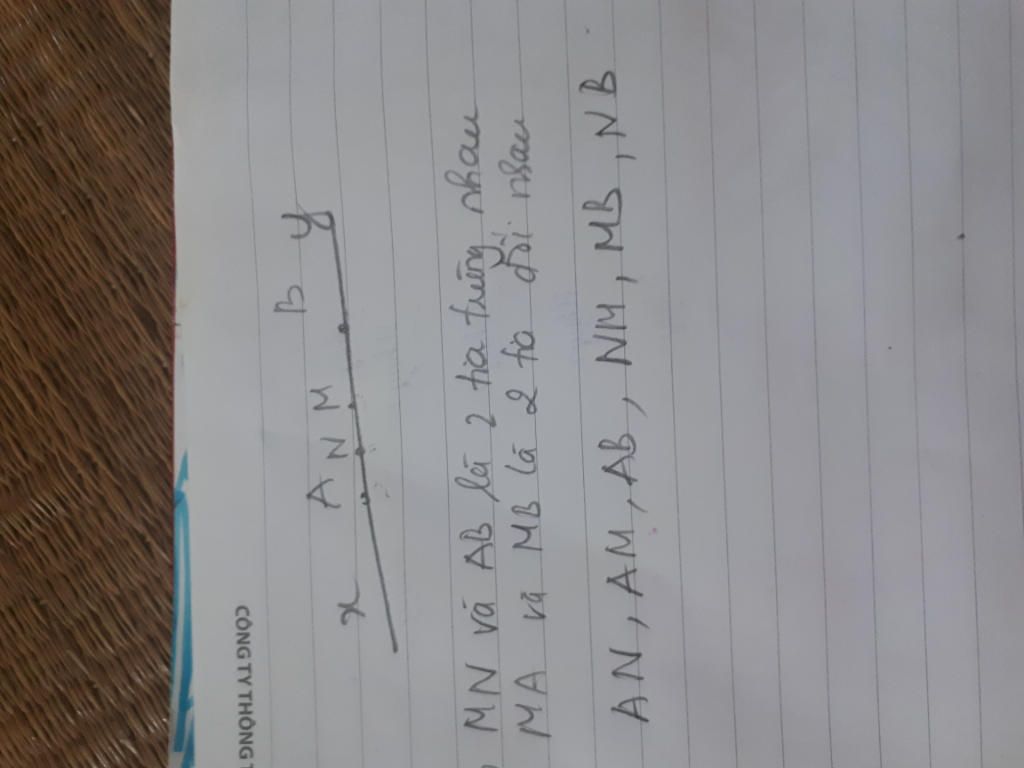 CÔNG TY THÔNG T
x A N M B y
MN và AB là 2 tia trùng nhau
MA và MB là 2 tia đối nhau
AN, AM, AB, NM, MB, NB